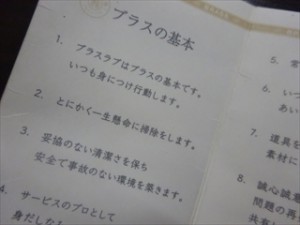 プラスの基本
1. プラスラブはプラスの基本です。
いつも身につけ行動します。
2. とにかく一生懸命に掃除をします。
3. 妥協のない清潔さを保ち
安全で事故のない環境を築きます。
4. サービスのプロとして
身だしな
5. 常
6. いつ
あい
7. 道具を
素材に
8. 誠心誠意
問題の再
共有